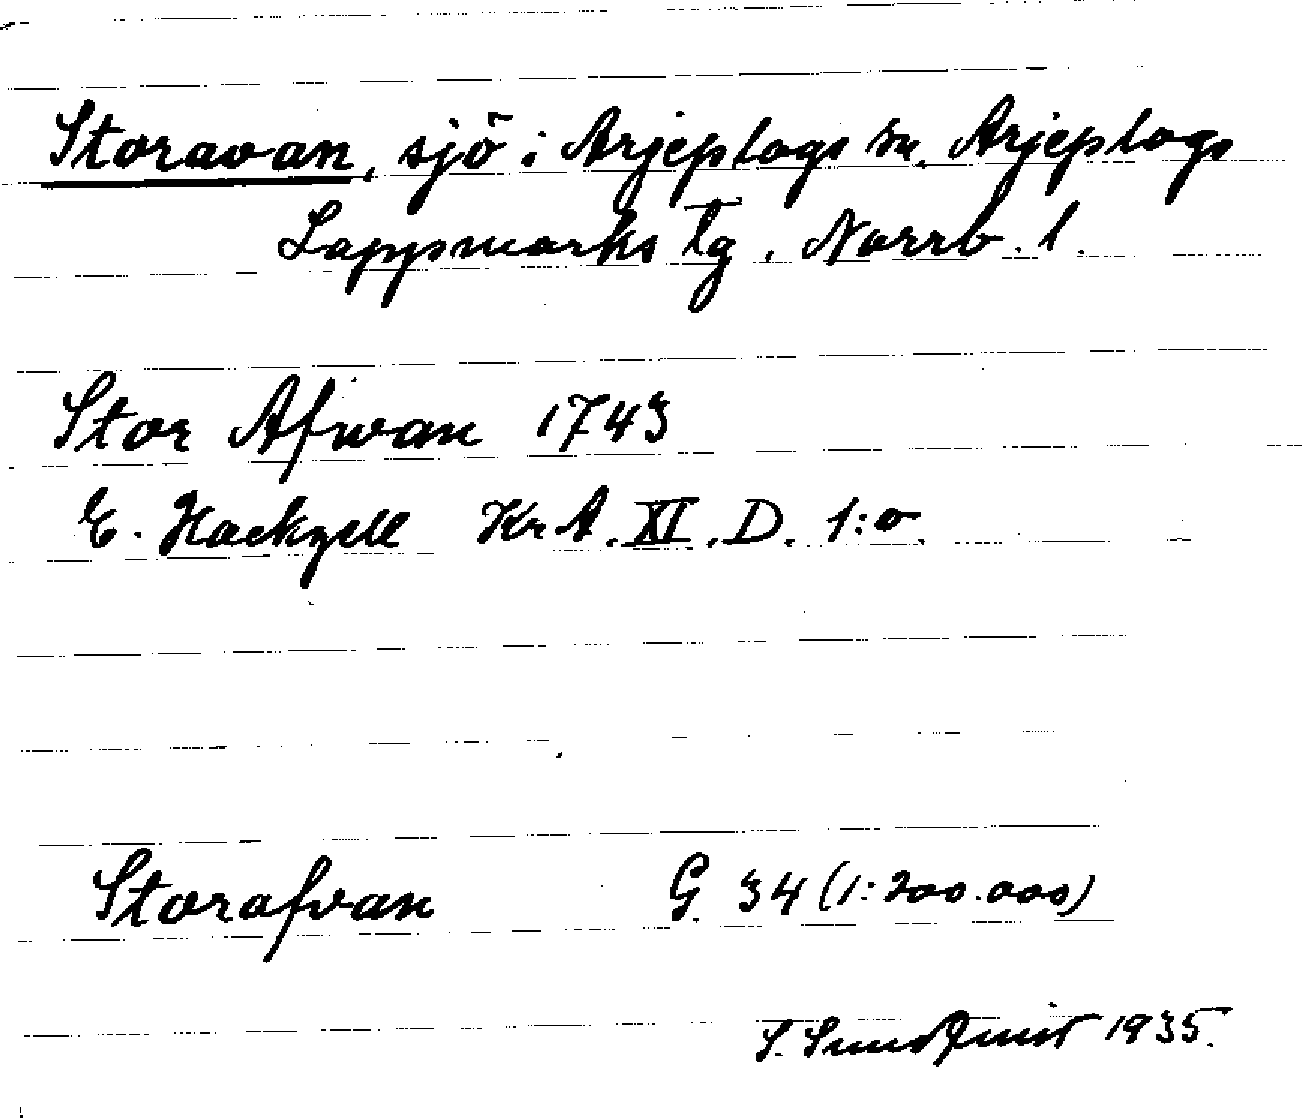 Storavan, sjö i Arjeplogs sn. Arjeplogs
Lappmarks tg, Norrb. l.
Stor Afwan 1743
E. Hackzell Kr A. XI. D. 1:o.
Storafvan G. 34 (1:200.000)
S. Sundquist 1935.